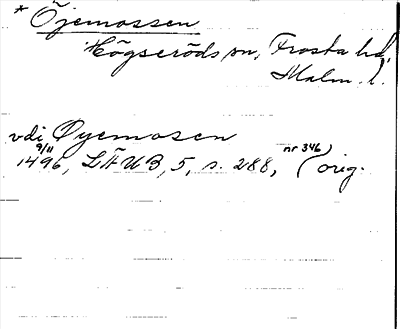 * Öjemossen
Högseröds sn, Frosta hd,
Malm. l.
vdi Øyemosen
9/11 1496, LÄUB, 5, s. 288, nr 346) (orig.